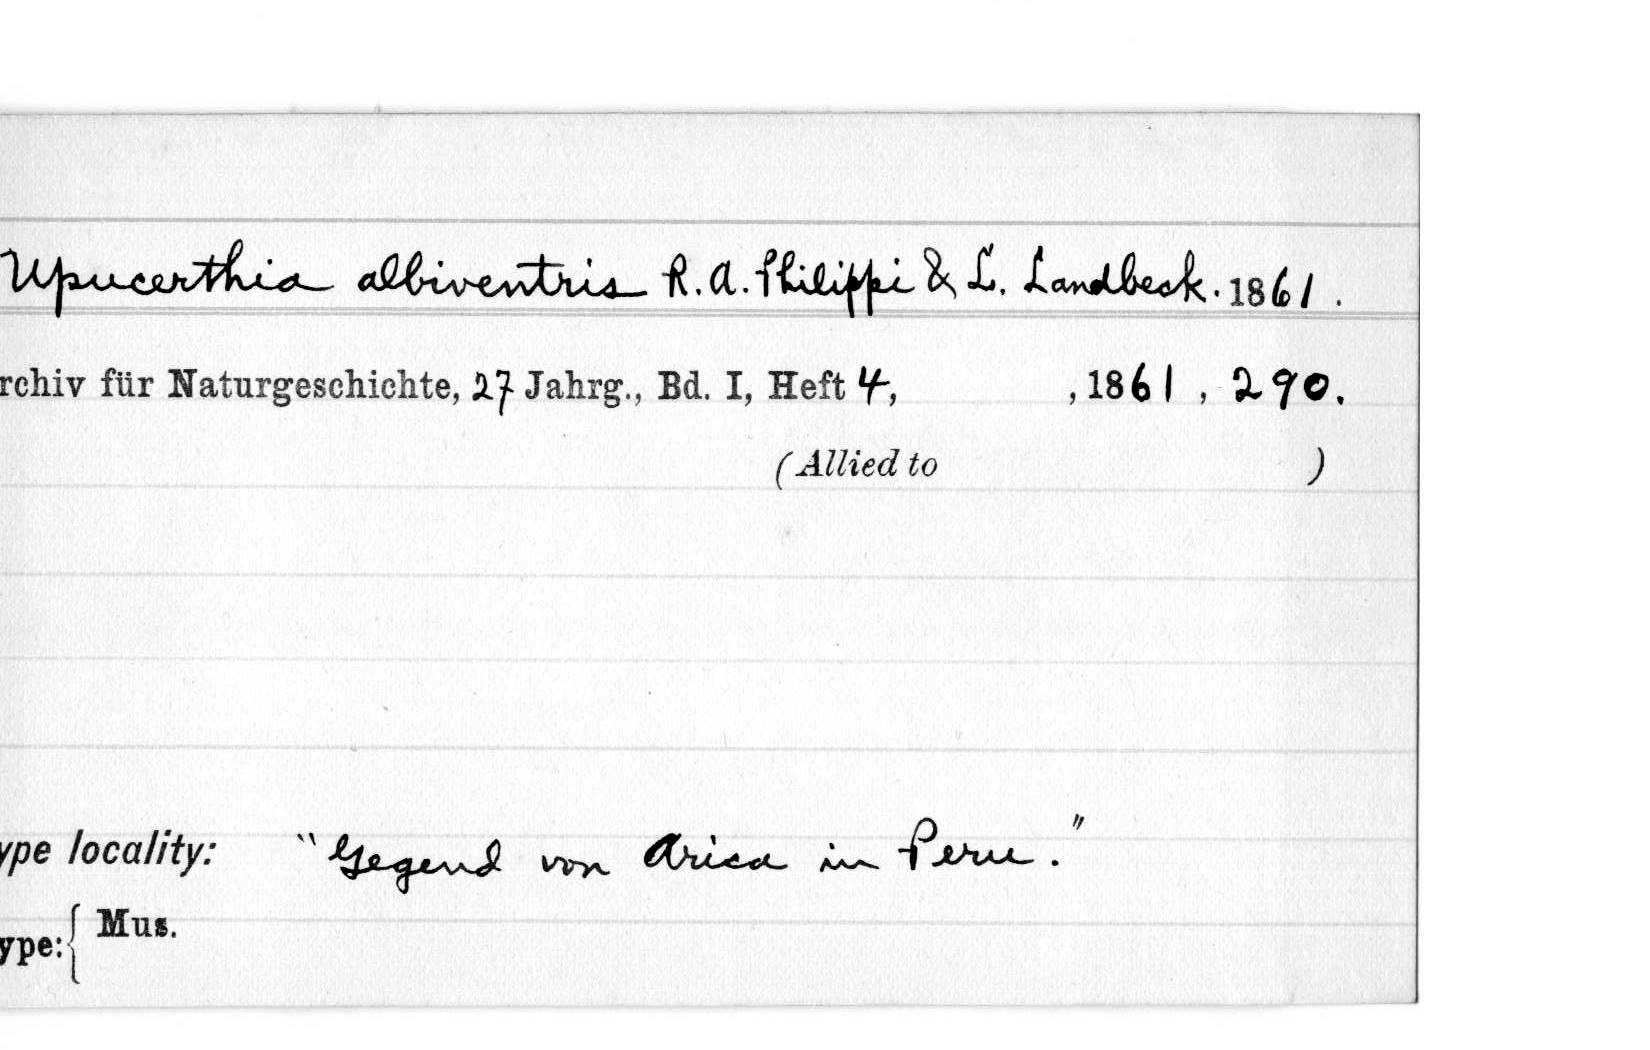 Upucerthia albiventris R. A. Philippi & L. Landbeck. 1861.
rchiv für Naturgeschichte, 27 Jahrg., Bd. I, Heft 4, , 1861, 290.
(Allied to )
ype locality: "Gegend von Arica in Peru."
ype: { Mus.